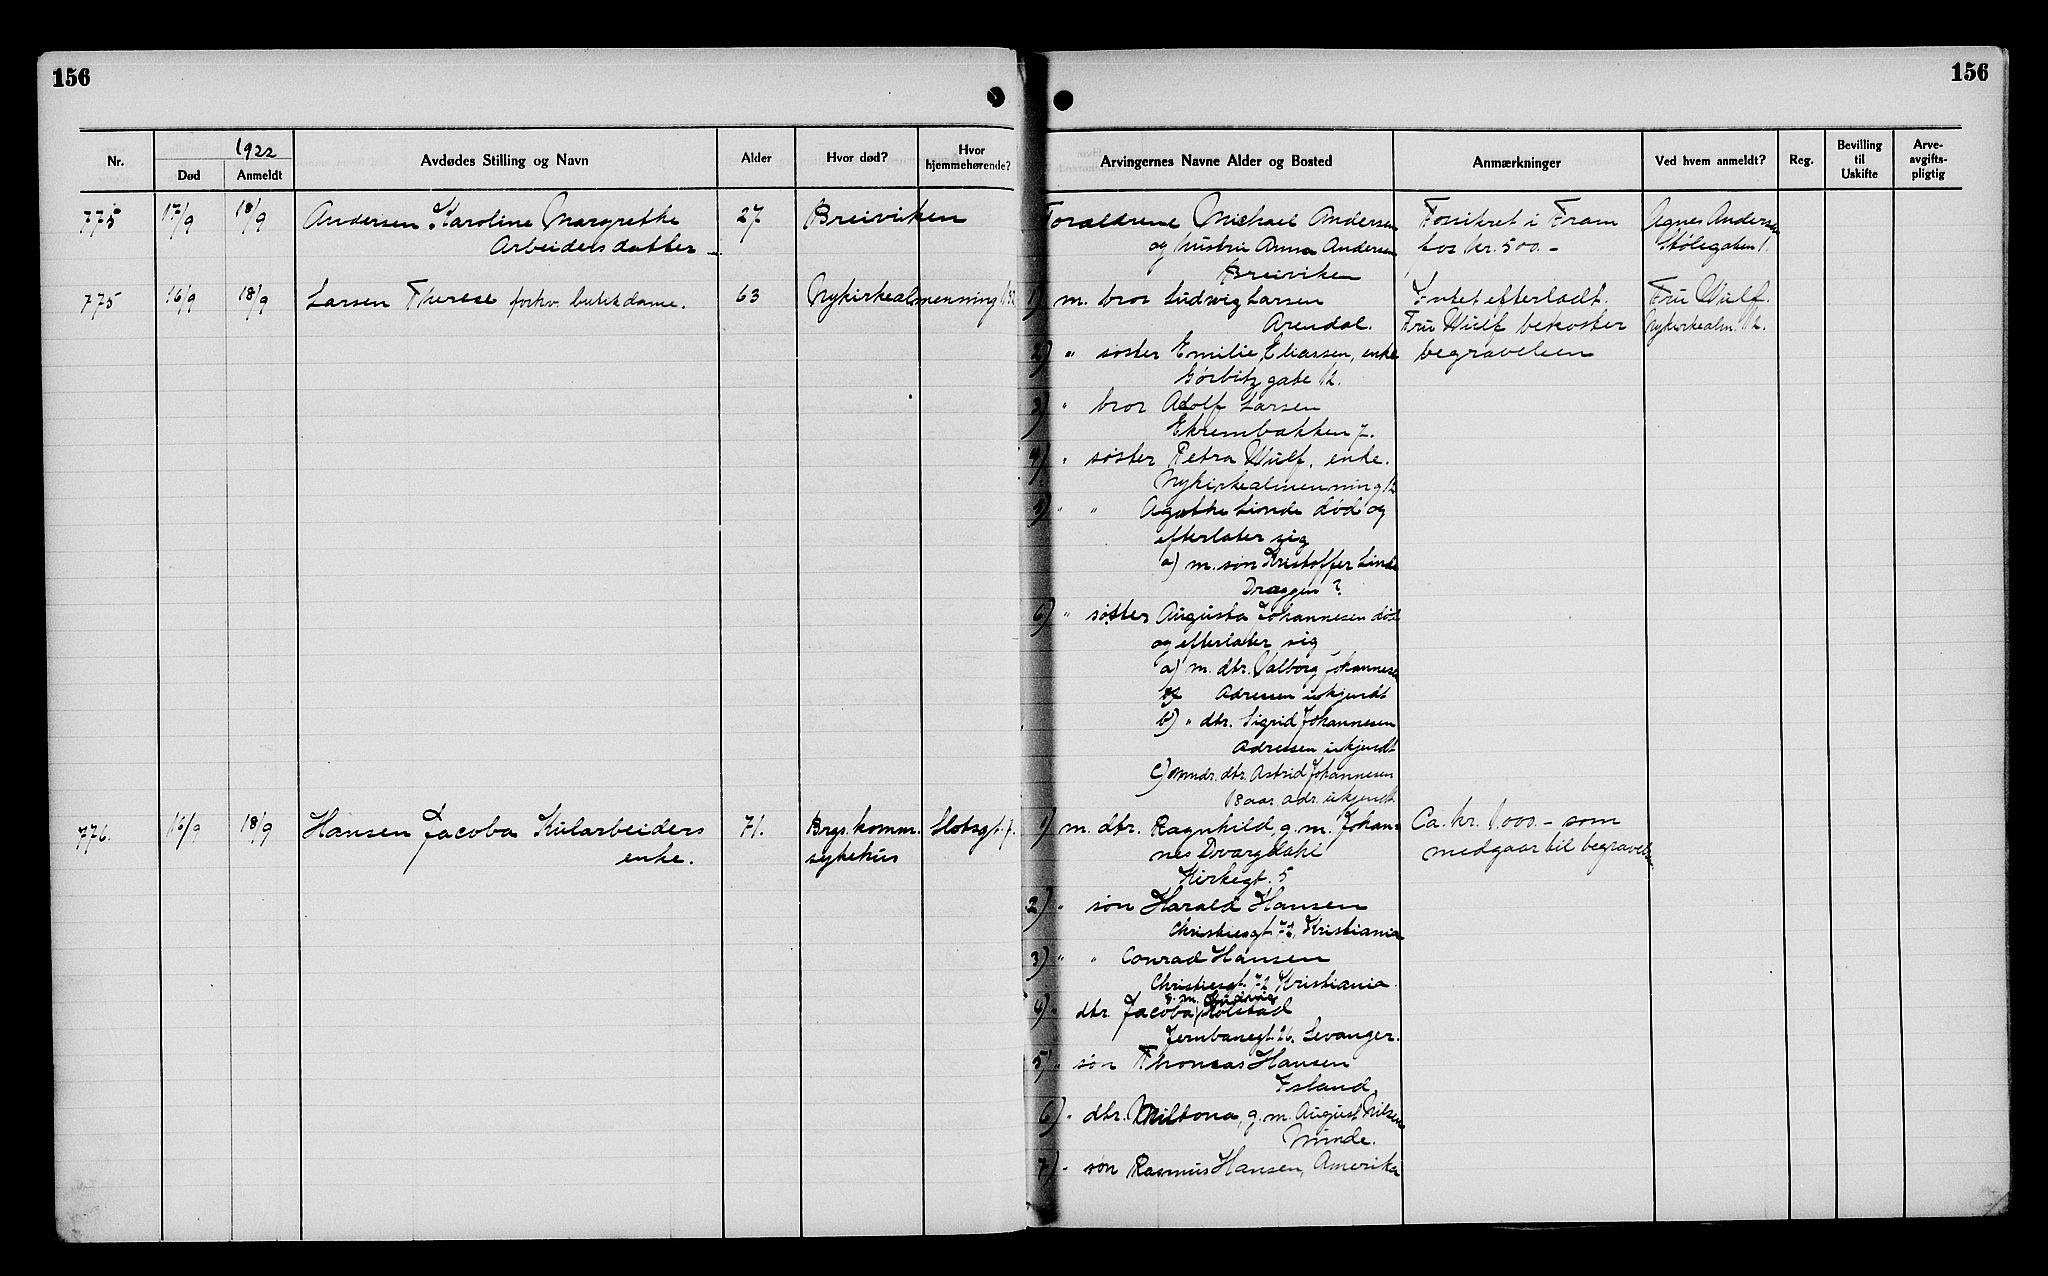 156
156
1922
Nr.
Død
Anmeldt
Avdødes Stilling og Navn
Alder
Hvor død?
Hvor hjemmehørende?
Arvingernes Navne Alder og Bosted
Anmærkninger
Ved hvem anmeldt?
Reg.
Bevilling til Uskifte
Arve-avgifts-pligtig
775 17/9 18/9 Andersen Karoline Margrethe 27 Breiviken Forældrene Michael Andersen Forsikret i Fram Agnes Andersen
Arbeidersdatter og hustru Anna Andersen for kr. 500.- Stølegaten 1.
Breiviken
775 16/9 18/9 Larsen Therese forhv. butikdame. 63 Nykirkealmenning 12 1) m. bror Ludwig Larsen Intet efterladt. Fru Wulf.
Arendal. Fru Wulf bekoster Nykirkealm. 12.
2) " søster Emilie Eliassen, enke begravelsen
Gørbitz gate 12.
3) " bror Adolf Larsen
Ekrembakken 7.
4) " søster Petra Wulf, enke.
Nykirkealmenning 12
5) " " Agathe Linde død og
efterlater sig
a) m. søn Kristoffer Linde
Dræggen ?
6) " søster Augusta Johannesen død
og efterlater sig
a) m. dtr. Valborg Johannesen
Adressen ukjendt
b) " dtr. Sigrid Johannesen
Adressen ukjendt
c) mndr. dtr. Astrid Johannesen
18 aar, adr. ukjendt
776. 16/9 18/9 Hansen Jacoba Kularbeiders 71. Brgs. komm. Slotsgt. 7. 1) m. dtr. Ragnhild, g. m. Johan- Ca. kr. 1000.- som
enke. sykehus nes Dvargdahl medgaar til begravelsen
Kirkegt. 5
2) " søn Harald Hansen
Christiesgt. Kristiania
3) " " Conrad Hansen
Christiesgt. Kristiania.
g. m.
4) " dtr. Jacoba Kolstad
Jernbanegt. 26. Levanger.
5) " søn Thomas Hansen
Island.
6) " dtr. Miltona, g. m. August Nilsen
Minde.
7) " søn Rasmus Hansen, Amerika